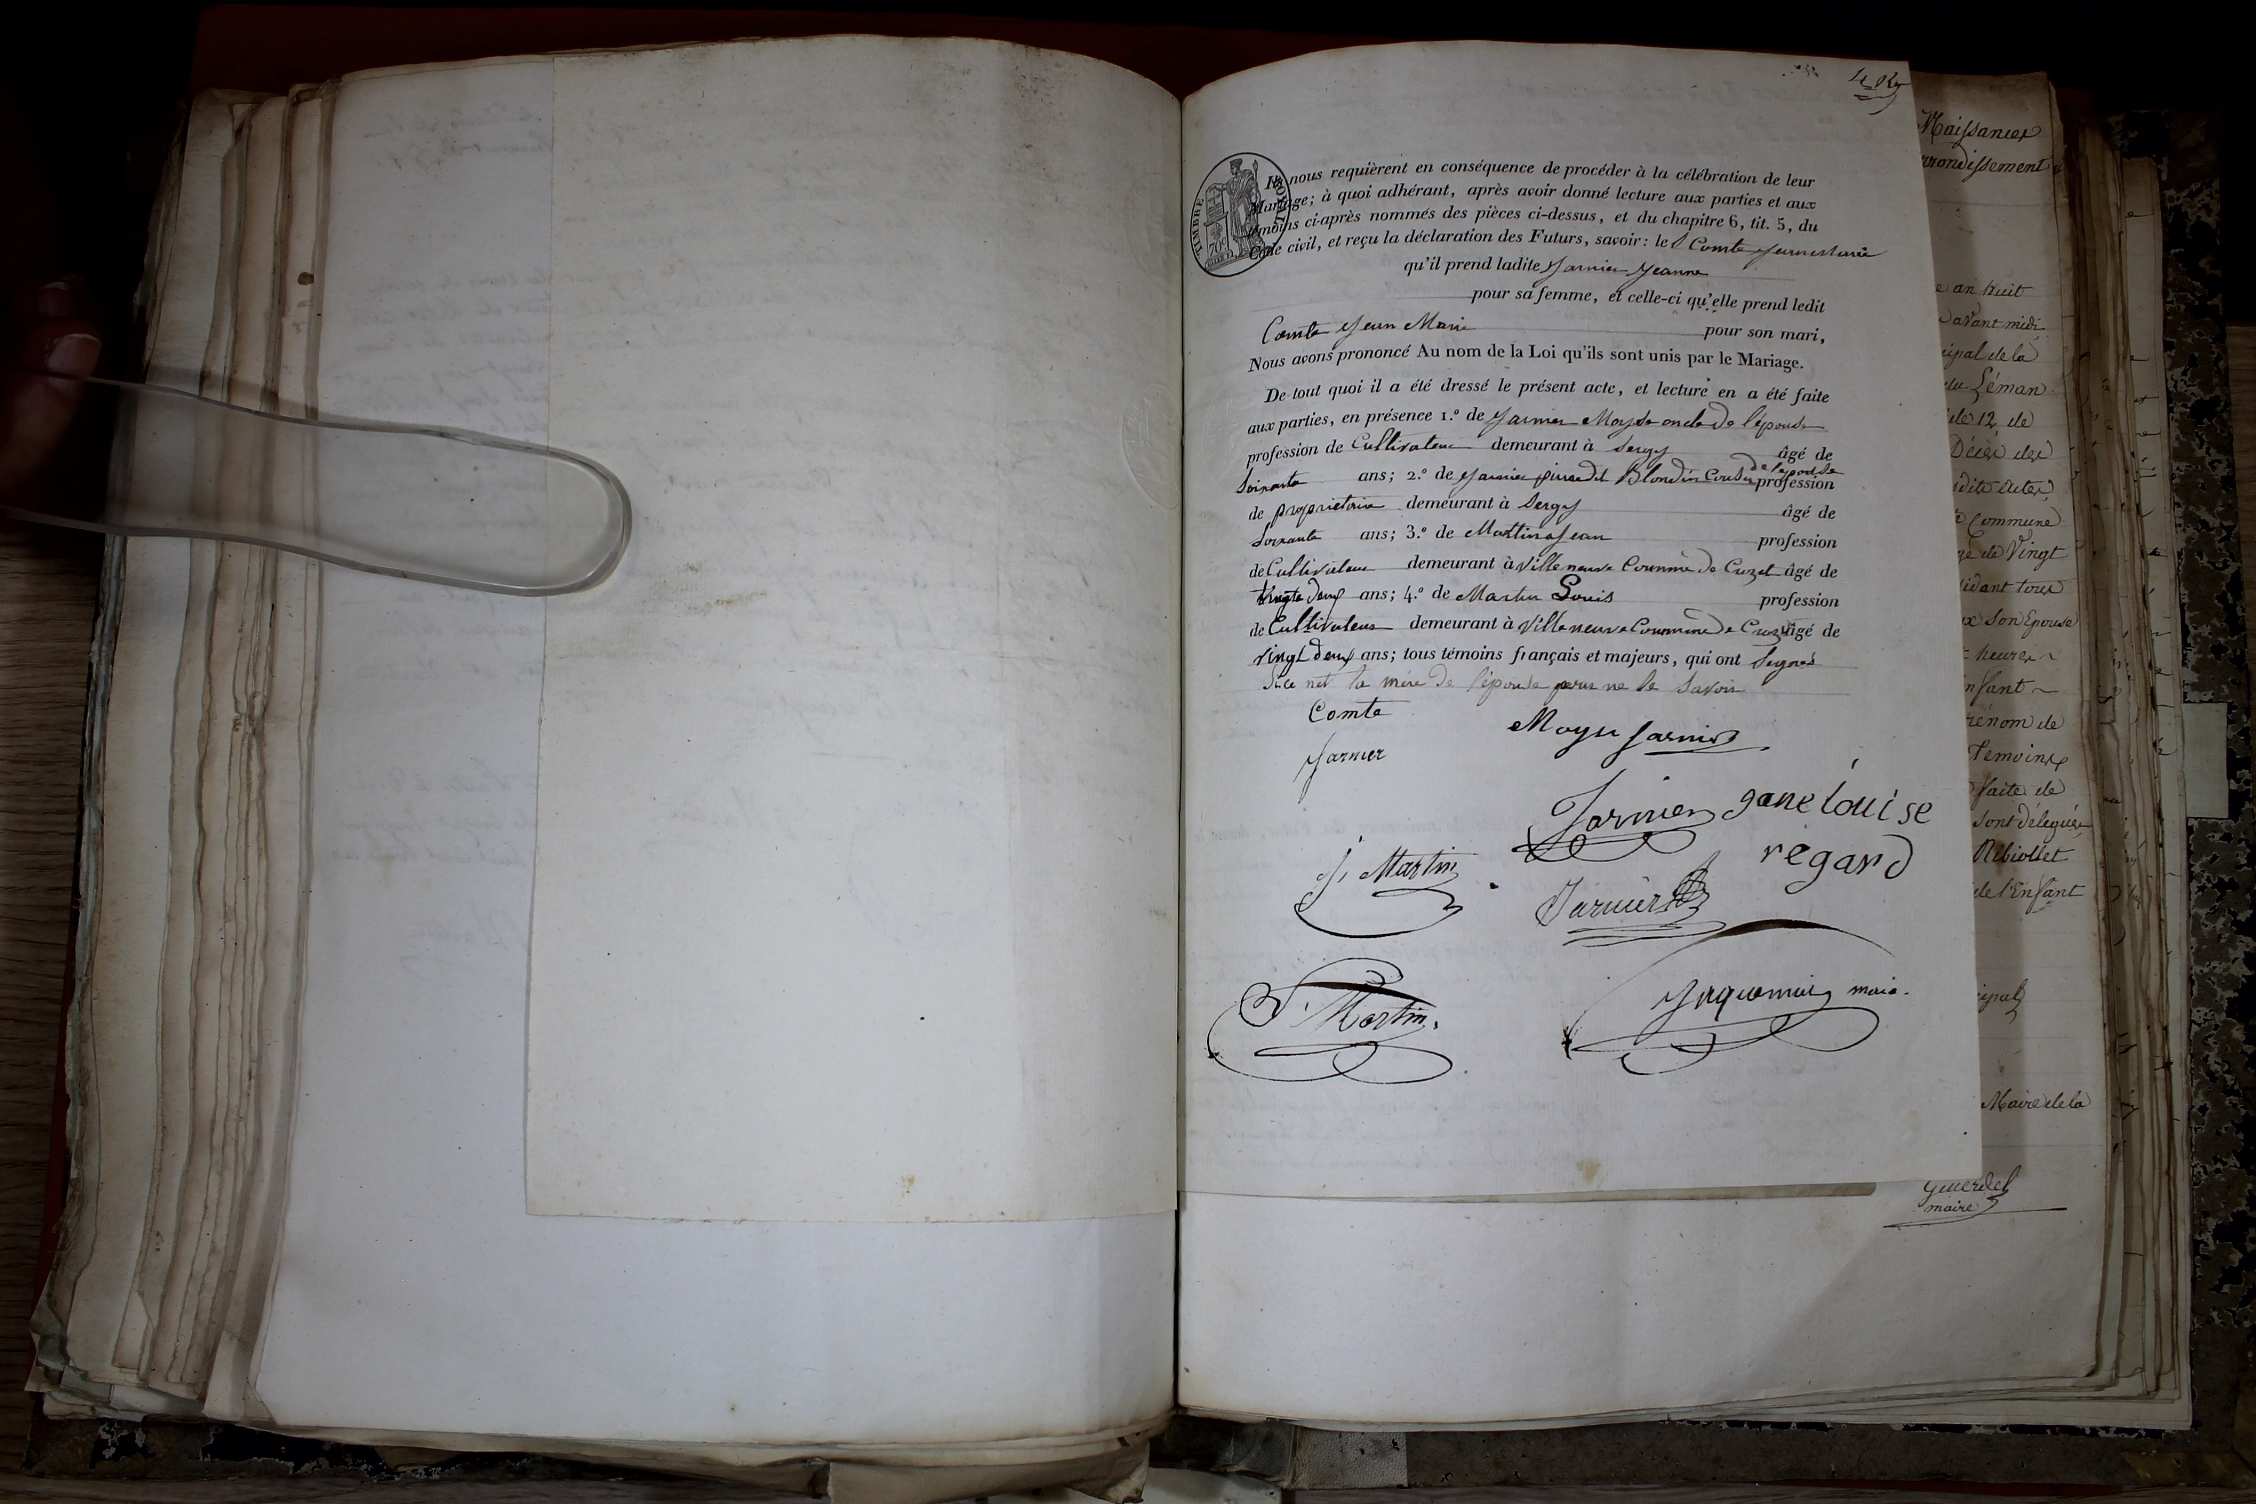 TIMBRE ROYAL
70c
Ils nous requièrent en conséquence de procéder à la célébration de leur
Mariage; à quoi adhérant, après avoir donné lecture aux parties et aux
témoins ci-après nommés des pièces ci-dessus, et du chapitre 6, tit. 5, du
Code civil, et reçu la déclaration des Futurs, savoir: le Comte Jean Marie
qu'il prend ladite Jarnier Jeanne
pour sa femme, et celle-ci qu'elle prend ledit
Comte Jean Marie pour son mari,
Nous avons prononcé Au nom de la Loi qu'ils sont unis par le Mariage.
De tout quoi il a été dressé le présent acte, et lecture en a été faite
aux parties, en présence 1.º de Jarnier Moyse oncle de l'épouse
profession de Cultivateur demeurant à Sergy âgé de
Soixante ans; 2.º de Jarnier pierre dit Blondin Cousin de l'épouse profession
de proprietaire demeurant à Sergy âgé de
Soixante ans; 3.º de Martin Jean profession
de Cultivateur demeurant à Villeneuve Commune de Cuzet âgé de
Vingte deux ans; 4.º de Martin Louis profession
de Cultivateur demeurant à Villeneuve Commune de âgé de
Vingt deux ans; tous témoins français et majeurs, qui ont Signés
Si ce net la mère de l'épouse pour ne le Savoir
Comte
Moyse Jarnier
Jarnier
Jarnier gane louise
regard
J. Martin
Jarnier
Jaquemier maire.
L. Martin.
Naissances
arrondissement
an huit
avant midi
de la
Léman
de 12 de
Décès des
dite
Commune
âgé de Vingt
tous
Son Epouse
heures
Enfant
Prénom de
Temoins
faite de
sont délégués
Rebiollet
de l'Enfant
Maire de la
maire